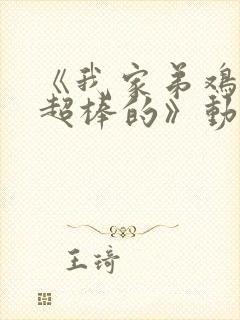 《我家弟鸡
超棒的》動
王琦